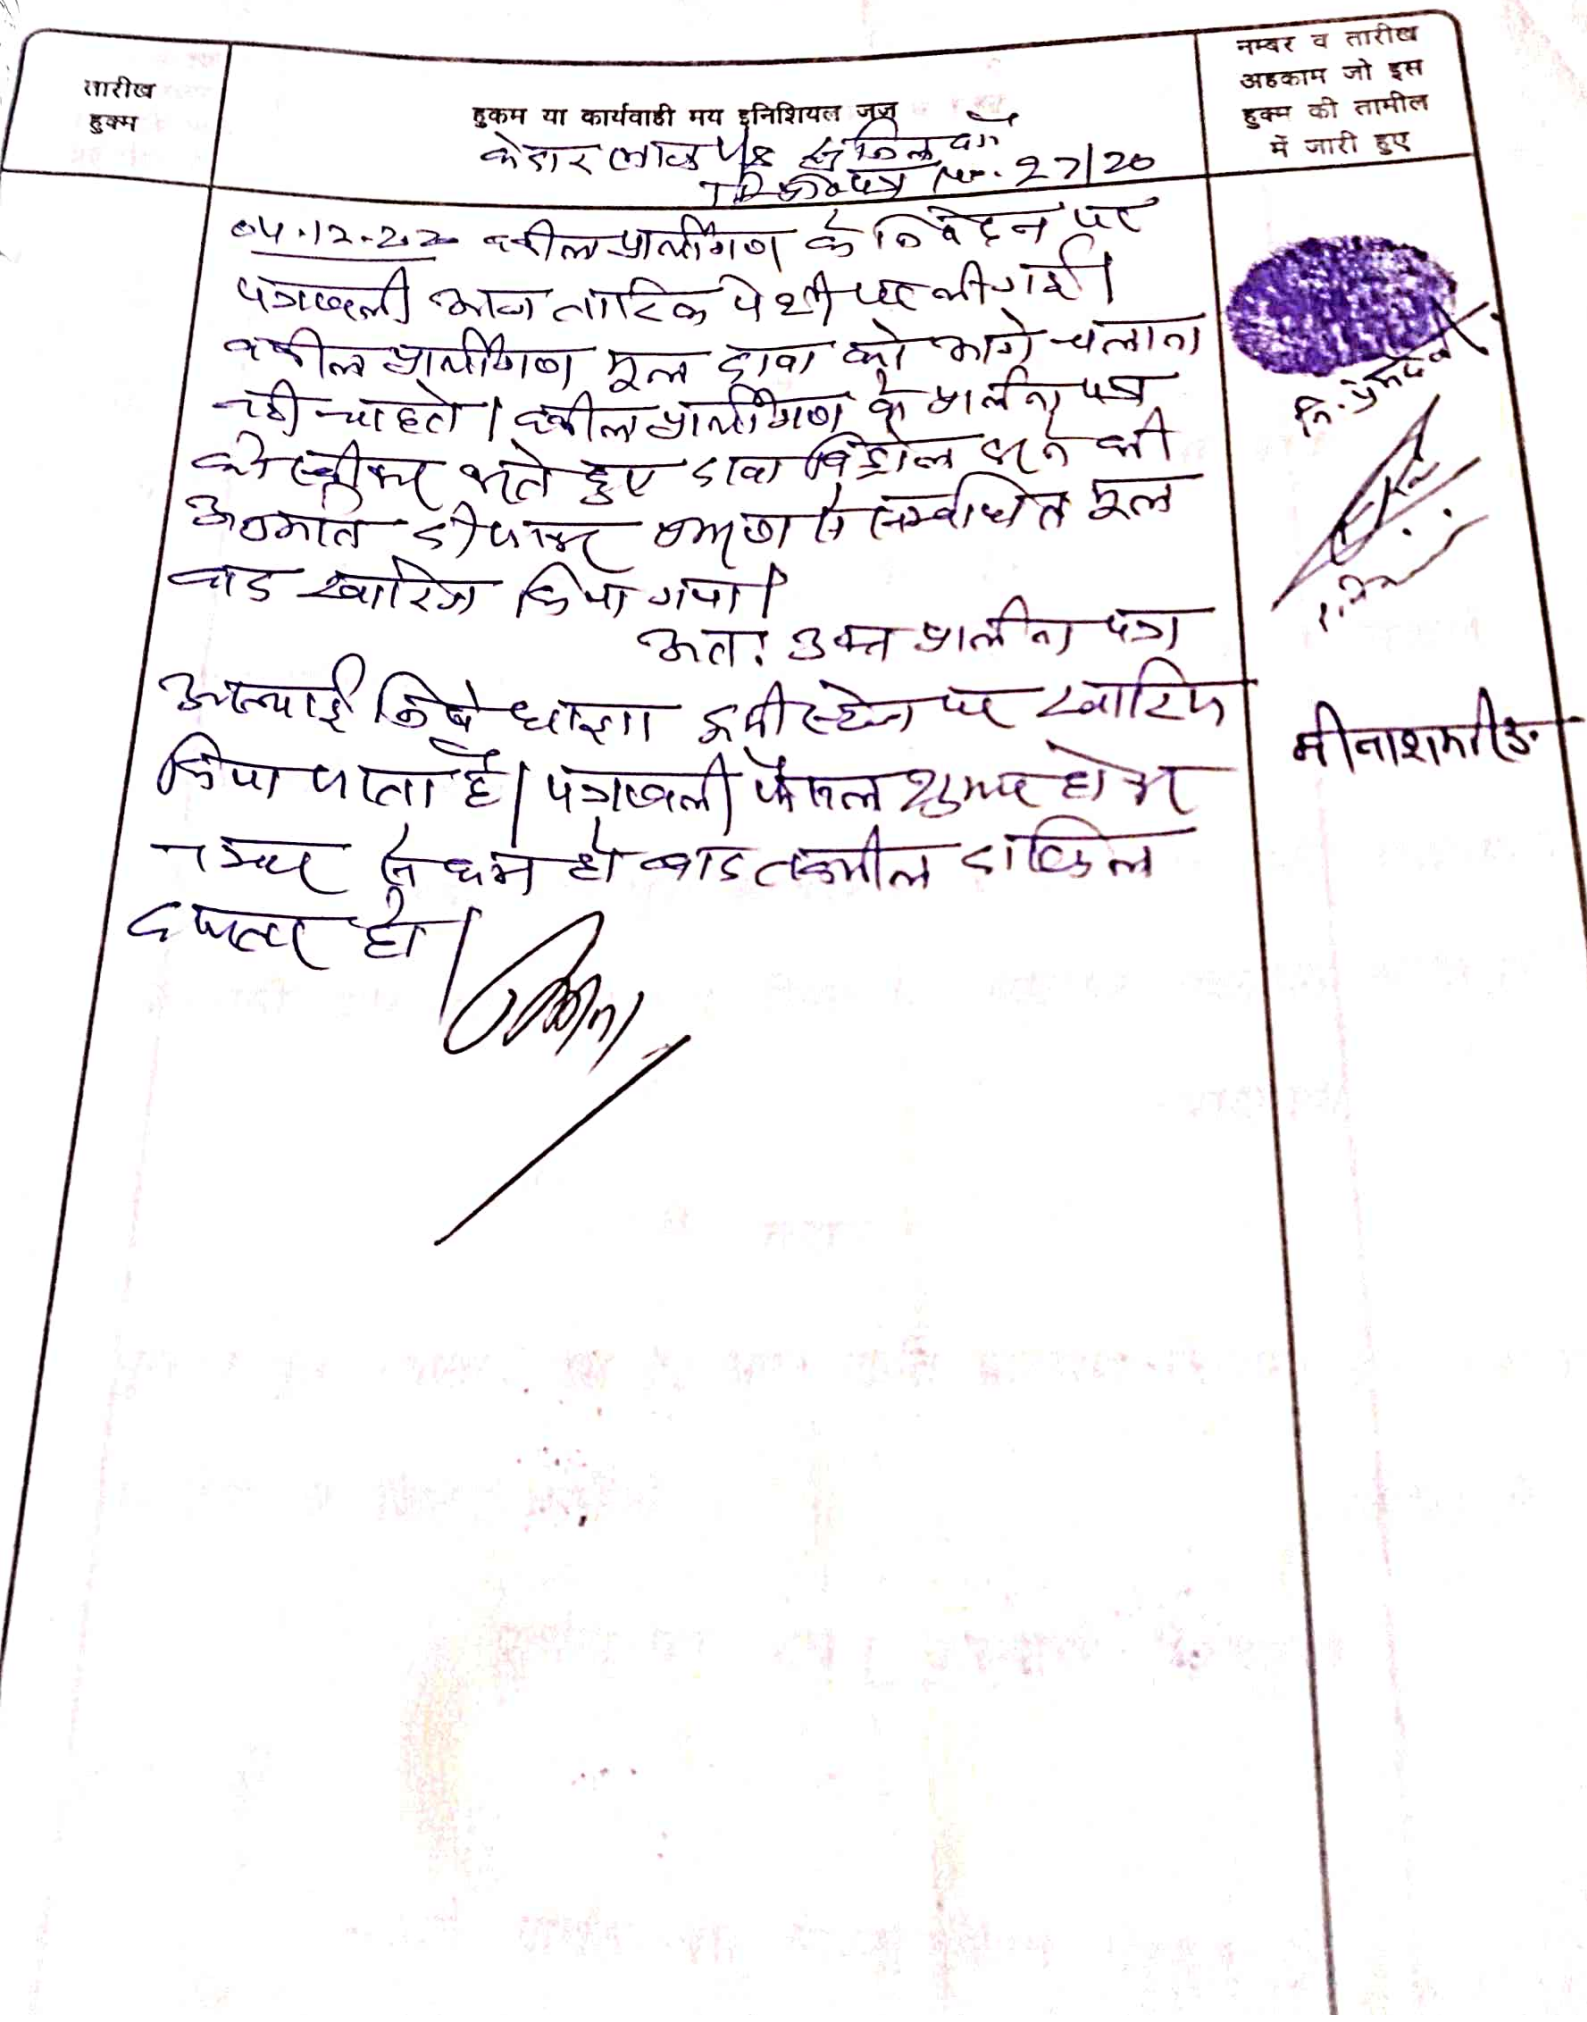 तारीख
हुक्म
हुकम या कार्यवाही मय इनिशियल जज
नम्बर व तारीख
अहकाम जो इस
हुक्म की तामील
में जारी हुए
केदार लाल
27/20
वकील प्रार्थीगण के निवेदन पर
पत्रावली आज तारिक पेशी पर ली गई।
वकील प्रार्थीगण मूल दावा को आगे चलाना
नही चाहते। वकील प्रार्थीगण के प्रार्थना पत्र
को स्वीकार करते हुए दावा विड्रोल करने की
अनुमति दी जाकर प्रकरण से सम्बंधित मूल
वाद खारिज किया गया।
अतः उक्त प्रार्थना पत्र
अस्थाई निषेधाज्ञा इसी स्टेज पर खारिज
किया जाता है। पत्रावली फैसल शुमार होकर
नम्बर से कम हो बाद तकमील दाखिल
दफ्तर हो।